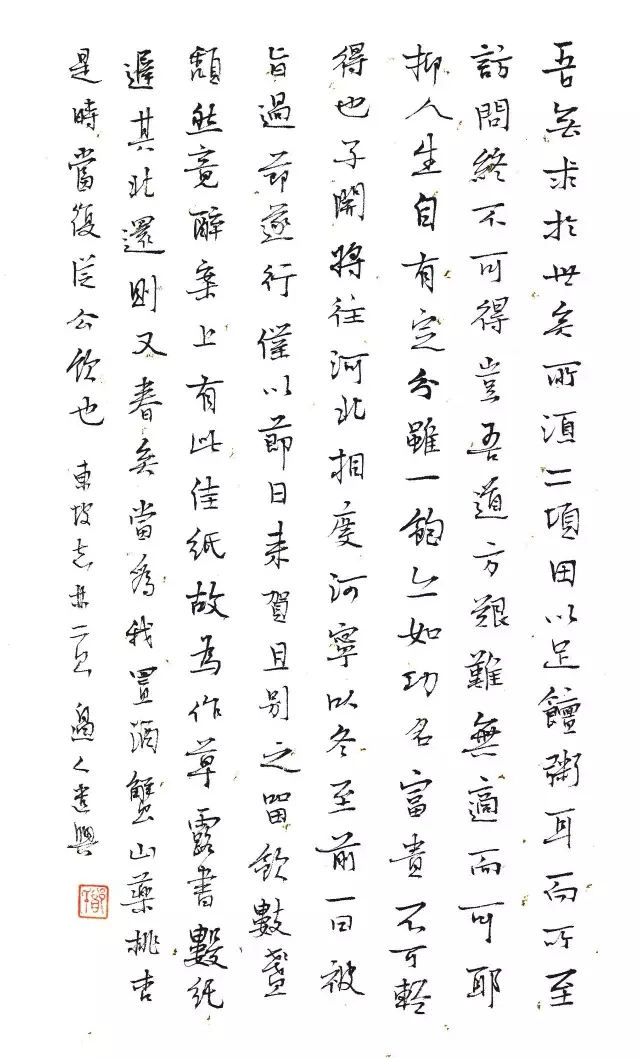 吾無求於世矣所須二頃田以足饘粥耳而所至
訪問終不可得豈吾道方艱難無適而可耶
抑人生自有定分雖一飽亦如功名富貴不可輕
得也子開將往河北相度河寧以冬至前一日被
旨過節遂行僕以節日來賀且別之留飲數盞
頹然竟醉案上有此佳紙故為作草露書數紙
遲其北還則又春矣當為我置酒蟹山藥桃杏
是時當復從公飲也
東坡志林二則 遣興